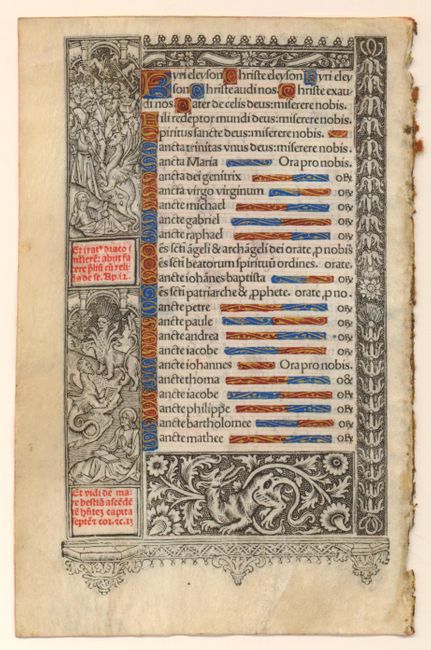 Kyrieleyson Christe eleyson Kyri eley
son Christe audi nos. Christe exau
di nos. Pater de celis deus: miserere nobis.
Fili redēptor mundi deus: miserere nobis.
Spiritus sancte deus: miserere nobis.
Sancta trinitas vnus deus: miserere nobis.
Sancta Maria Ora pro nobis.
Sancta dei genitrix or̄
Sancta virgo virginum or̄
Sancte michael or̄
Sancte gabriel or̄
Sancte raphael or̄
Oēs sctī āgeli & archāgeli dei orate ,p nobis
Oēs sctī beatorum spirituū ordines. orate.
Sancte iohānes baptista or̄
Oēs sctī patriarche &,pphete. orate,p no.
Sancte petre or̄
Sancte paule or̄
Sancte andrea or̄
Sancte iacobe or̄
Sancte iohannes Ora pro nobis.
Sancte thoma o&
Sancte iacobe or̄
Sancte philippe or̄
Sancte bartholomee or̄
Sancte mathee or̄
Et irat⁹ draco ī
mulierē: abiit fa
cere p̄liū cū reli
de se. Ap. 12.
Et vidi de ma
re bestiā ascēdē
tē hn̄tez capita
septē & cor. 10. 13